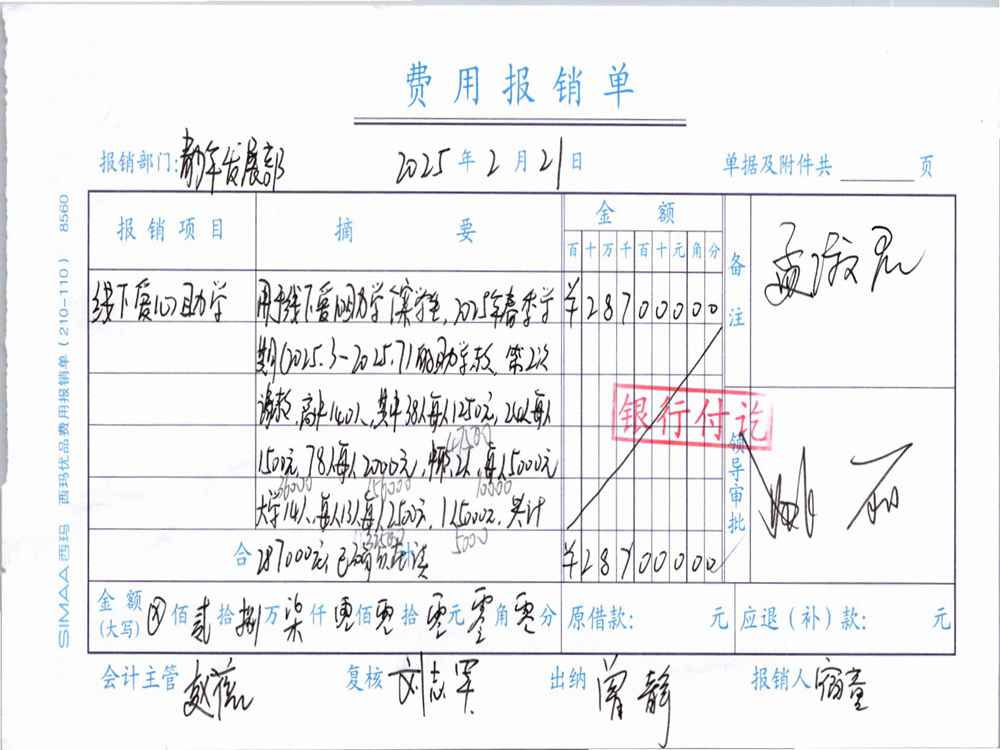 费用报销单
报销部门: 青年发展部 2025 年 2 月 21 日 单据及附件共 页
报销项目 摘 要 金 额 备注
百 十 万 千 百 十 元 角 分
线下爱心助学 用于线下爱心助学 学生, 2025年春季学 ¥28700000
期(2025.3-2025.7)的助学款, 第2次
高中140人, 其中38人每人1250元, 24人每人
47500
1500元, 78人每人2000元, 2人, 每人5000元
36000 156000 10000
大学14人, 每人 13人每人2500元, 1 5000元, 共计
32500 5000
合 计 287000元, 已 ¥28700000
银行付讫
领导审批
金额 (大写) ⊗ 佰 贰 拾 捌 万 柒 仟 零 佰 零 拾 零 元 零 角 零 分 原借款: 元 应退(补)款: 元
会计主管 复核 刘志军 出纳 曾静 报销人
SIMAA 西玛 西玛优品费用报销单(210-110) 8560